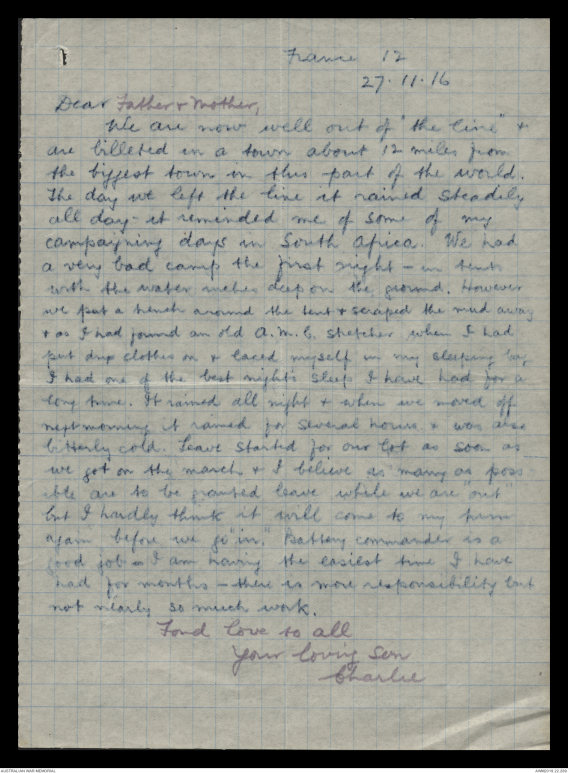 France 12
27.11.16
Dear Father & Mother,
We are now well out of "the line" &
are billeted in a town about 12 miles from
the biggest town in this part of the world.
The day we left the line it rained steadily
all day - it reminded me of some of my
campaigning days in South Africa. We had
a very bad camp the first night - in tents
with the water inches deep on the ground. However
we put a trench around the tent & scraped the mud away
& as I had found an old A.M.C. stretcher when I had
put dry clothes on & laced myself in my sleeping bag
I had one of the best night's sleep I have had for a
long time. It rained all night & when we moved off
next morning it rained for several hours & was also
bitterly cold. Leave started for our lot as soon as
we got on the march & I believe as many as poss
ible are to be granted leave while we are "out"
but I hardly think it will come to my turn
again before we go "in." Battery commander is a
good job - I am having the easiest time I have
had for months - there is more responsibility but
not nearly so much work.
Fond love to all
Your loving Son
Charlie
AUSTRALIAN WAR MEMORIAL